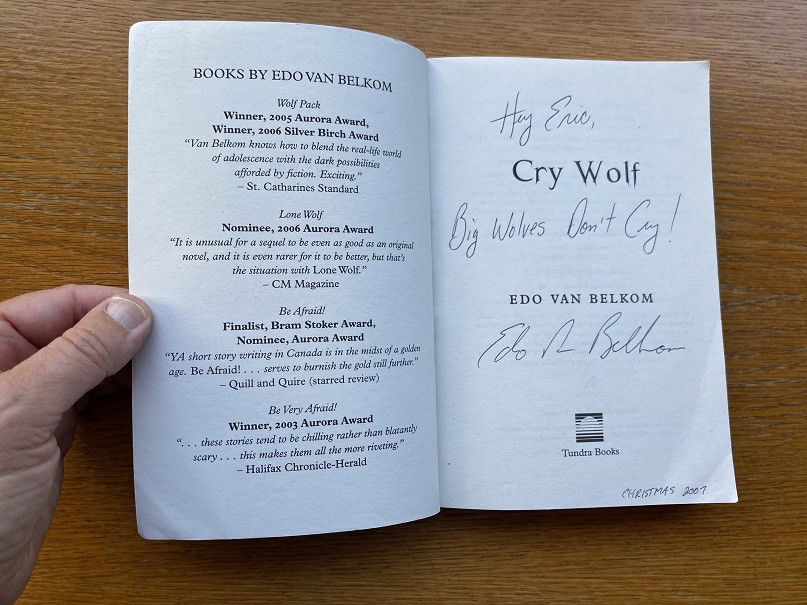 BOOKS BY EDO VAN BELKOM
Wolf Pack
Winner, 2005 Aurora Award,
Winner, 2006 Silver Birch Award
“Van Belkom knows how to blend the real-life world
of adolescence with the dark possibilities
afforded by fiction. Exciting.”
– St. Catharines Standard
Lone Wolf
Nominee, 2006 Aurora Award
“It is unusual for a sequel to be even as good as an original
novel, and it is even rarer for it to be better, but that’s
the situation with Lone Wolf.”
– CM Magazine
Be Afraid!
Finalist, Bram Stoker Award,
Nominee, Aurora Award
“YA short story writing in Canada is in the midst of a golden
age. Be Afraid! . . . serves to burnish the gold still further.”
– Quill and Quire (starred review)
Be Very Afraid!
Winner, 2003 Aurora Award
“. . . these stories tend to be chilling rather than blatantly
scary . . . this makes them all the more riveting.”
– Halifax Chronicle-Herald
Hey Eric,
Cry Wolf
Big Wolves Don't Cry!
EDO VAN BELKOM
Edo van Belkom
Tundra Books
CHRISTMAS 2007